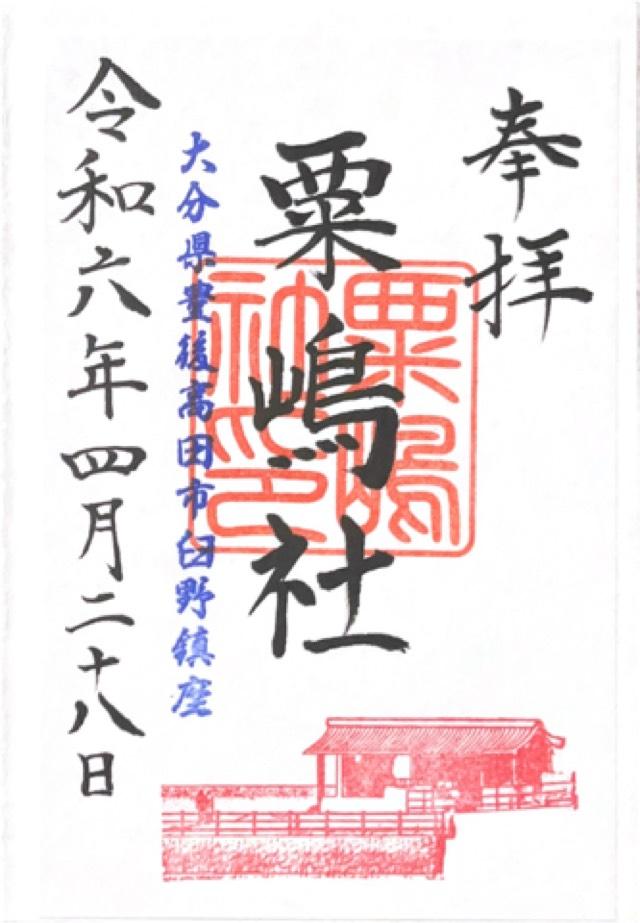 奉拝
粟嶋社
粟嶋
社印
大分県豊後高田市臼野鎮座
令和六年四月二十八日